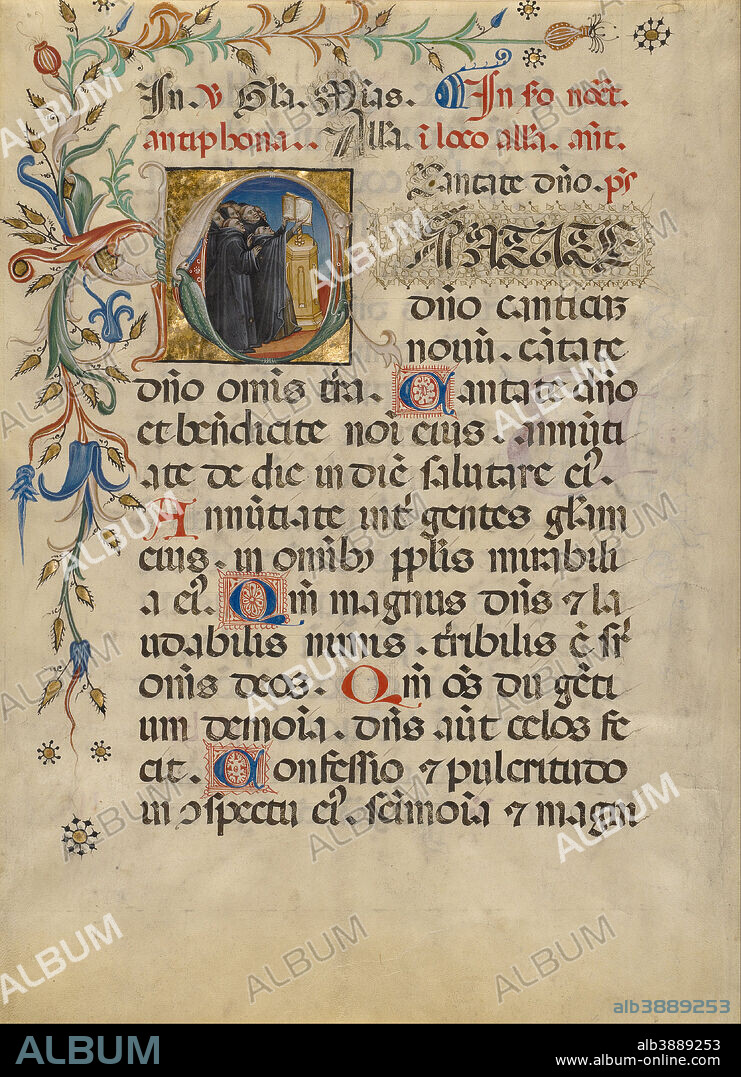 In. V Gla. Mias. In fo noct.
antiphona. Alla. i loco alla. ant.
Cantate dno. ps
CANTATE
dno canticuz
nouu. cātate
dno omis tr̄a. Cantate dno
et ben̄dicite noī eius. annūti
ate de die in diē salutare ei᾽.
Annūtiate int̄ gentes glam
eius. in omib᾽ pplis mirabili
a ei᾽. Qm̄ magnus dn̄s ⁊ la
udabilis nimis. tr̄ibilis ē
om̄s deos. Qm̄ om̄s dii gēti
um demoīa. dn̄s aūt celos fe
cit. Confessio ⁊ pulcritudo
in ↄspectu ei᾽. scīmoīa ⁊ magn̄i
ALBUM
alb3889253
ALBUM
alb3889253
www.album-online.com